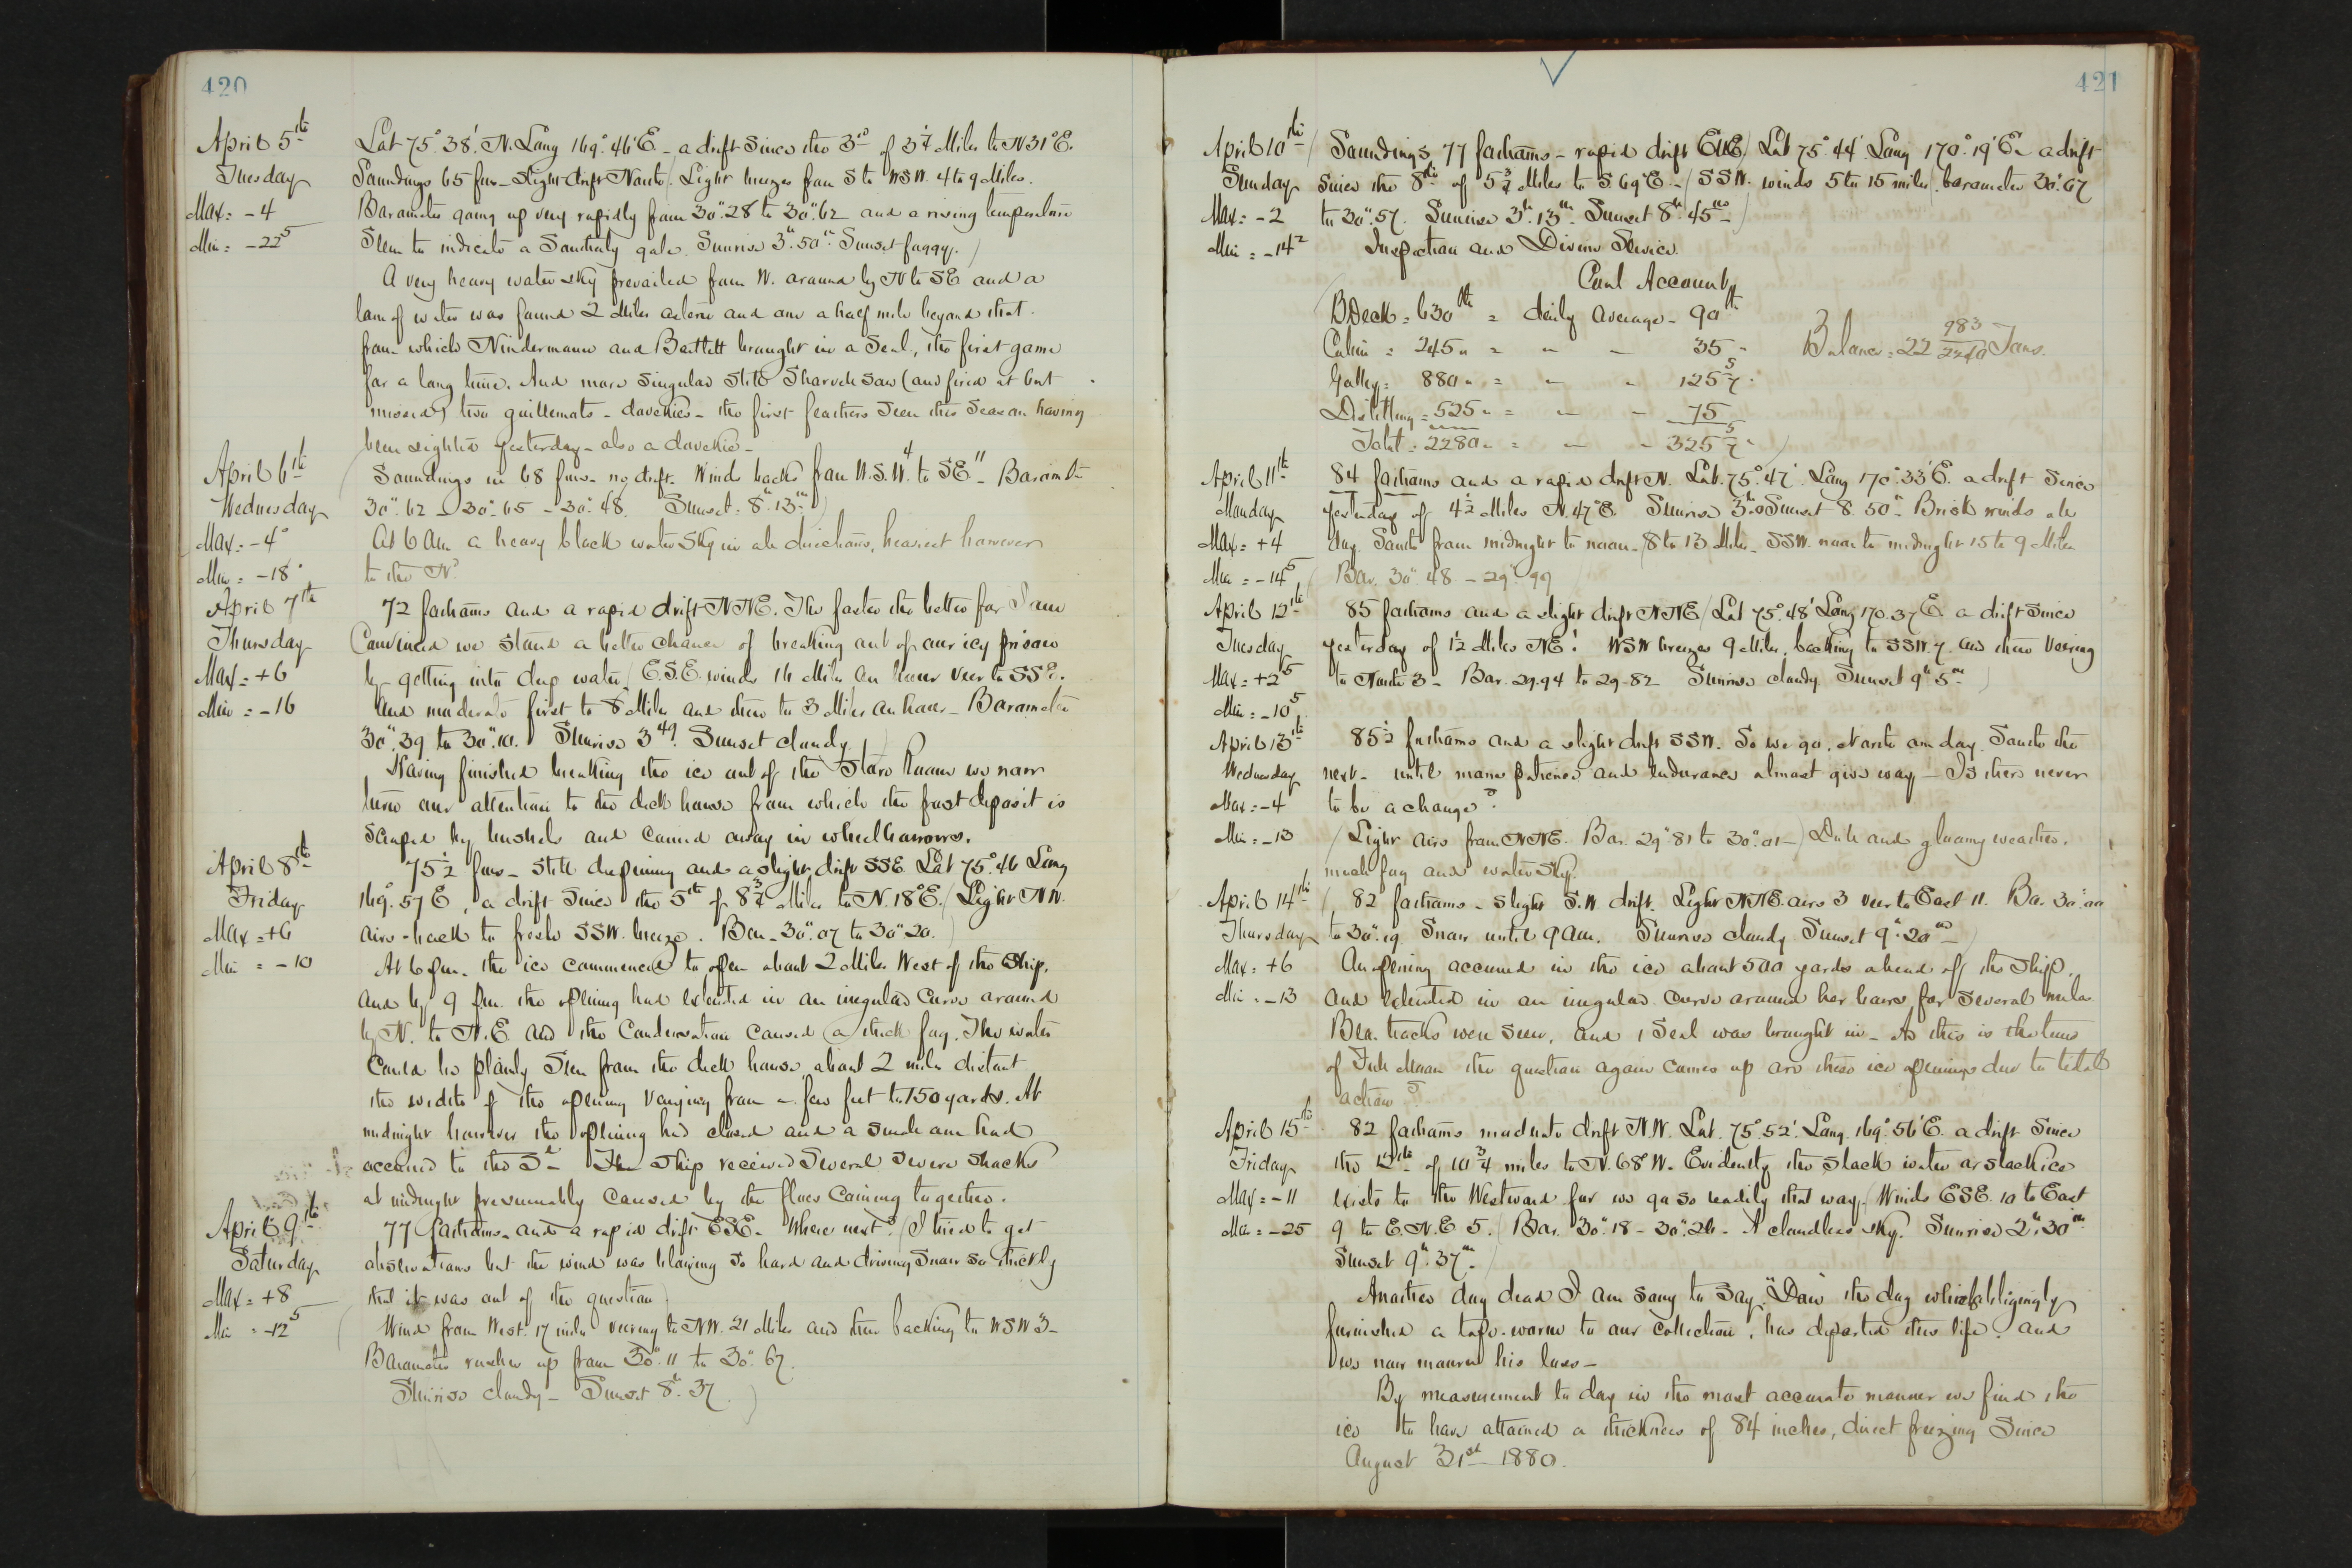 420
April 5th
Tuesday
Max = -4
Min = -22⁵
Lat 75°.38'. N. Long 169°.46'E - a drift since the 3rd of 3¼ Miles to N31°E.
Soundings 65 fms - slight drift North / Light breezes from S to WSW. 4 to 9 Miles.
Barometer going up very rapidly from 30".28 to 30".62 and a rising temperature
Seem to indicate a Southerly gale. Sunrise 3h.50m. Sunset foggy.)
A very heavy water sky prevailed from W. around by N to SE and a
lane of water was found 2 Miles astern and one a half mile beyond that.
from which Nindermann and Bartlett brought in a Seal, the first game
for a long time. And more singular still Sharvell saw (and fired at but
missed) two guillemots - dovekies - the first feathers seen this season having
been sighted yesterday - also a dovekie -
April 6th
Wednesday
Max = -4°
Min = -18°
(Soundings in 68 fms - no drift. Wind backs from W.S.W. 4 to SE 11 - Barometer
30".62 - 30".65 - 30".48. Sunset = 8h.13m.)
At 6 AM a heavy black water sky in all directions, heaviest however
to the Nd
April 7th
Thursday
Max = +6
Min = -16
72 fathoms and a rapid drift NNE. The faster the better for I am
Convinced we stand a better chance of breaking out of our icy prison
by getting into deep water / E.S.E. winds 16 Miles an hour veer to SSE.
and moderate first to 8 Miles and then to 3 Miles an hour - Barometer
30".39 to 30".10. Sunrise 3 49. Sunset cloudy.)
Having finished breaking the ice out of the Store Room we now
turn our attention to the deck house from which the frost deposit is
Scraped by bushels and carried away in wheelbarrows.
April 8th
Friday
Max = +6
Min = -10
75½ fms - still deepening and a slight drift SSE. Lat 75°.46 Long
169°.57 E, a drift since the 5th of 8¾ Miles to N.18°E. / Light NW.
airs - back to fresh SSW. breeze. Bar - 30".07 to 30".20.)
At 6 pm. the ice commenced to open about 2 Miles West of the Ship,
and by 9 pm. the opening had extended in an irregular curve around
by N. to N.E and the Condensation caused a thick fog. The water
Could be plainly seen from the deck house, about 2 miles distant
the width of the opening varying from a few feet to 150 yards. At
midnight however the opening had closed and a similar one had
occurred to the Sd - The Ship received Several severe shocks
at midnight presumably caused by the floes coming together.
April 9th
Saturday
Max = +8
Min = -12⁵
77 fathoms and a rapid drift ESE. Where next? (I tried to get
observations but the wind was blowing so hard and driving snow so thickly
that it was out of the question)
(Wind from West. 17 miles veering to NW. 21 Miles and then backing to WSW 3 -
Barometer rushes up from 30".11 to 30".67.
Sunrise cloudy - Sunset 8h.37.)
421
April 10th
Sunday
Max = -2
Min = -14²
(Soundings 77 fathoms - rapid drift ESE / Lat 75°.44' Long 170°.19' E - a drift
since the 8th of 5¾ Miles to S 69°E - (SSW. winds 5 to 15 miles. barometer 30".67
to 30".57. Sunrise 3h.13m - Sunset 8h.45m -)
Inspection and Divine Service.
Coal Account
B Deck = 630 lbs = daily average - 90 lbs
Cabin = 245 " = " - 35 "
Galley = 880 " = " - 125 5/7 "
Distilling = 525 " = " - 75 "
Total = 2280 " = " - 325 5/7 ")
Balance = 22 983/2240 Tons.
April 11th
Monday
Max = +4
Min = -14⁵
84 fathoms and a rapid drift N. Lat. 75°.47'. Long 170°.33'E. a drift since
yesterday of 4½ Miles N.47°E. Sunrise 3h.0 Sunset 8.50m. Brisk winds all
day. South from midnight to noon - 8 to 13 Miles - SSW. noon to midnight 15 to 9 Miles
(Bar. 30".48 - 29".99)
April 12th
Tuesday
Max = +2⁵
Min = -10⁵
85 fathoms and a slight drift NNE / Lat 75°.48' Long 170.37'E. a drift since
yesterday of 1½ Miles NE! WSW breezes 9 Miles, backing to SSW. 7. and then veering
to North 3 - Bar. 29.94 to 29-82 Sunrise cloudy Sunset 9h 5m -)
April 13th
Wednesday
Max = -4
Min = -13
85½ fathoms and a slight drift SSW. So we go. North one day. South the
next - until mans patience and endurance almost give way - Is there never
to be a change?
(Light airs from NNE. Bar. 29".81 to 30".01 -) Dull and gloomy weather.
much fog and water sky.
April 14th
Thursday
Max = +6
Min = -13
(82 fathoms - slight S.W. drift. Light NNE airs 3 veer to East 11. Ba. 30".00
to 30".19. Snow until 9 AM. Sunrise cloudy Sunset 9h.20m -)
An opening occurred in the ice about 500 yards ahead of the Ship,
and extended in an irregular curve around her bows for several miles.
Bear tracks were seen, and 1 Seal was brought in - As this is the time
of Full Moon the question again comes up are these ice openings due to tidal
action?
April 15th
Friday
Max = -11
Min = -25
82 fathoms moderate drift N.W. Lat. 75°.52'. Long. 169°.56'E. a drift since
the 12th of 10¾ miles to N.68°W. Evidently the slack water or slack ice
exists to the Westward for we go so readily that way. (Winds ESE. 10 to East
9 to E.N.E 5. (Bar. 30".18 - 30".26 - A cloudless sky. Sunrise 2h.30m
Sunset 9h.37m.)
Another dog dead I am sorry to say. "Dan" the dog which obligingly
furnished a tape-worm to our collection, has departed this life. and
we now mourn his loss -
By measurement to day in the most accurate manner we find the
ice to have attained a thickness of 84 inches, direct freezing since
August 31st 1880.